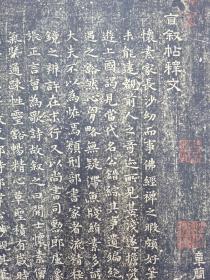 自叙帖釋文
懷素家長沙幼而事佛經禪之暇頗好筆
未能遠覩前人之奇迹所見甚淺遂擔笈
遊上國謁見當代名公錯綜其事遺編絕
遇之豁然心胸略無疑滯魚牋絹素多所
大夫不以為怪焉顏刑部書家者流精極
鏡之辨許在末行又以尚書司勳郎盧象
張正言曾為歌詩故叙之曰開士懷素僧
氣槩通疎性靈豁暢精心草聖積有歲時
章簡